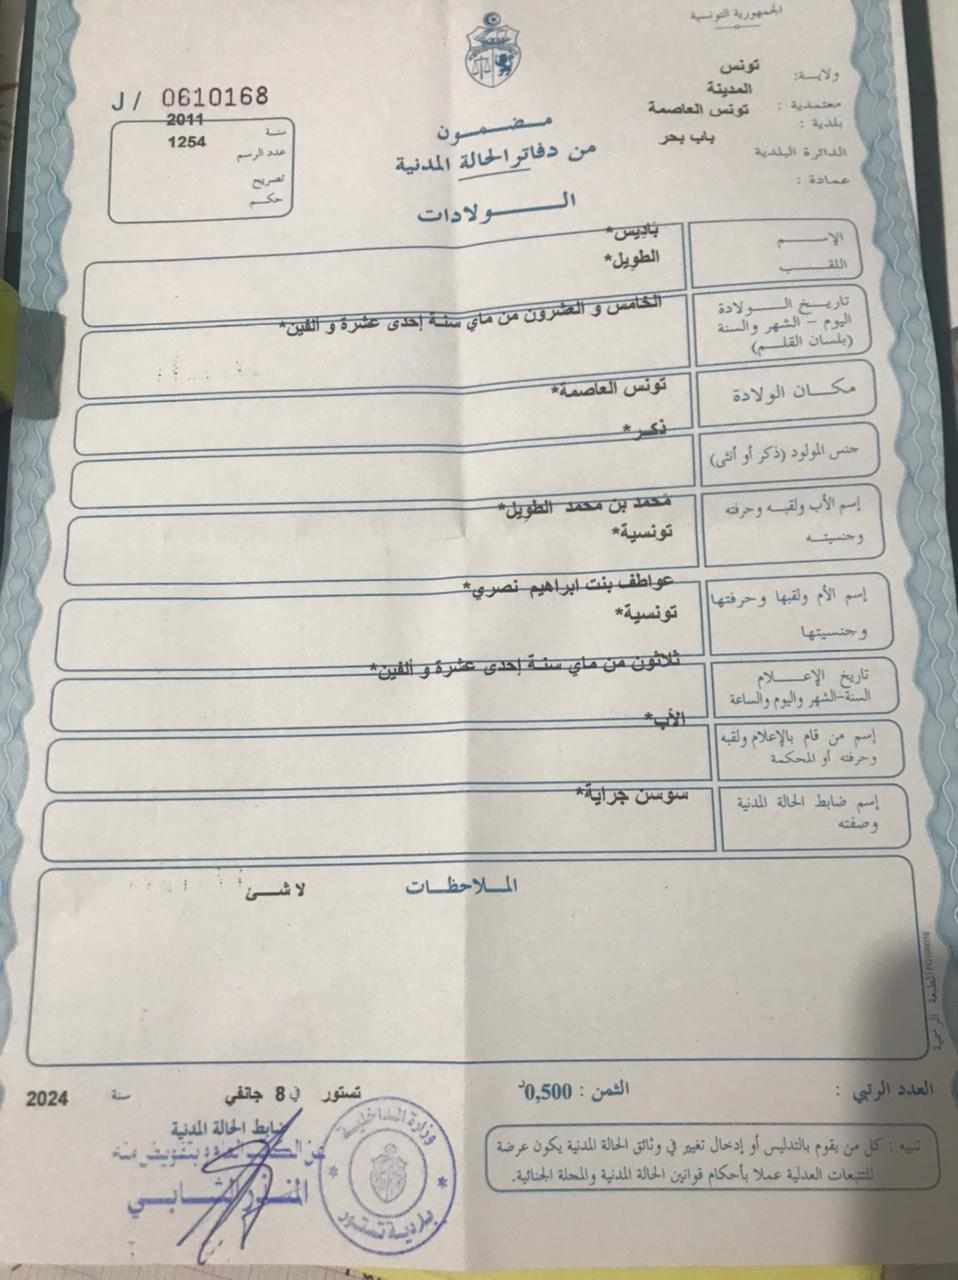 الجمهورية التونسية
ولاية: تونس
معتمدية : المدينة
بلدية : تونس العاصمة
الدائرة البلدية باب بحر
عمادة :
J / 0610168
سنة 2011
عدد الرسم 1254
تصريح
حكم
مضمون
من دفاتر الحالة المدنية
الولادات
الإسم باديس*
اللقب الطويل*
تاريخ الولادة الخامس و العشرون من ماي سنة إحدى عشرة و ألفين*
اليوم - الشهر والسنة
(بلسان القلم)
مكان الولادة تونس العاصمة*
جنس المولود (ذكر أو أنثى) ذكر*
إسم الأب ولقبه وحرفته محمد بن محمد الطويل*
وجنسيته تونسية*
إسم الأم ولقبها وحرفتها عواطف بنت ابراهيم نصري*
وجنسيتها تونسية*
تاريخ الإعلام ثلاثون من ماي سنة إحدى عشرة و ألفين*
السنة-الشهر واليوم والساعة
إسم من قام بالإعلام ولقبه الأب*
وحرفته أو المحكمة
إسم ضابط الحالة المدنية سوسن جراية*
وصفته
الملاحظات لا شئ
العدد الرتبي :
الثمن : 0,500د
تستور في 8 جانفي سنة 2024
تنبيه : كل من يقوم بالتدليس أو إدخال تغيير في وثائق الحالة المدنية يكون عرضة
للتتبعات العدلية عملا بأحكام قوانين الحالة المدنية والمجلة الجنائية.
ضابط الحالة المدنية
بتفويض منه
وزارة الداخلية
بلدية تستور